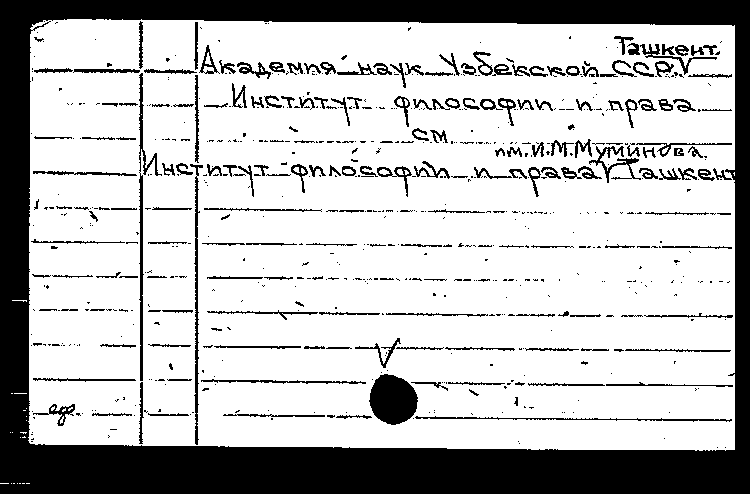 Ташкент.
Академия наук Узбекской ССР.√
Институт философии и права
см
им. И.М. Муминова.
Институт философии и права √ Ташкент